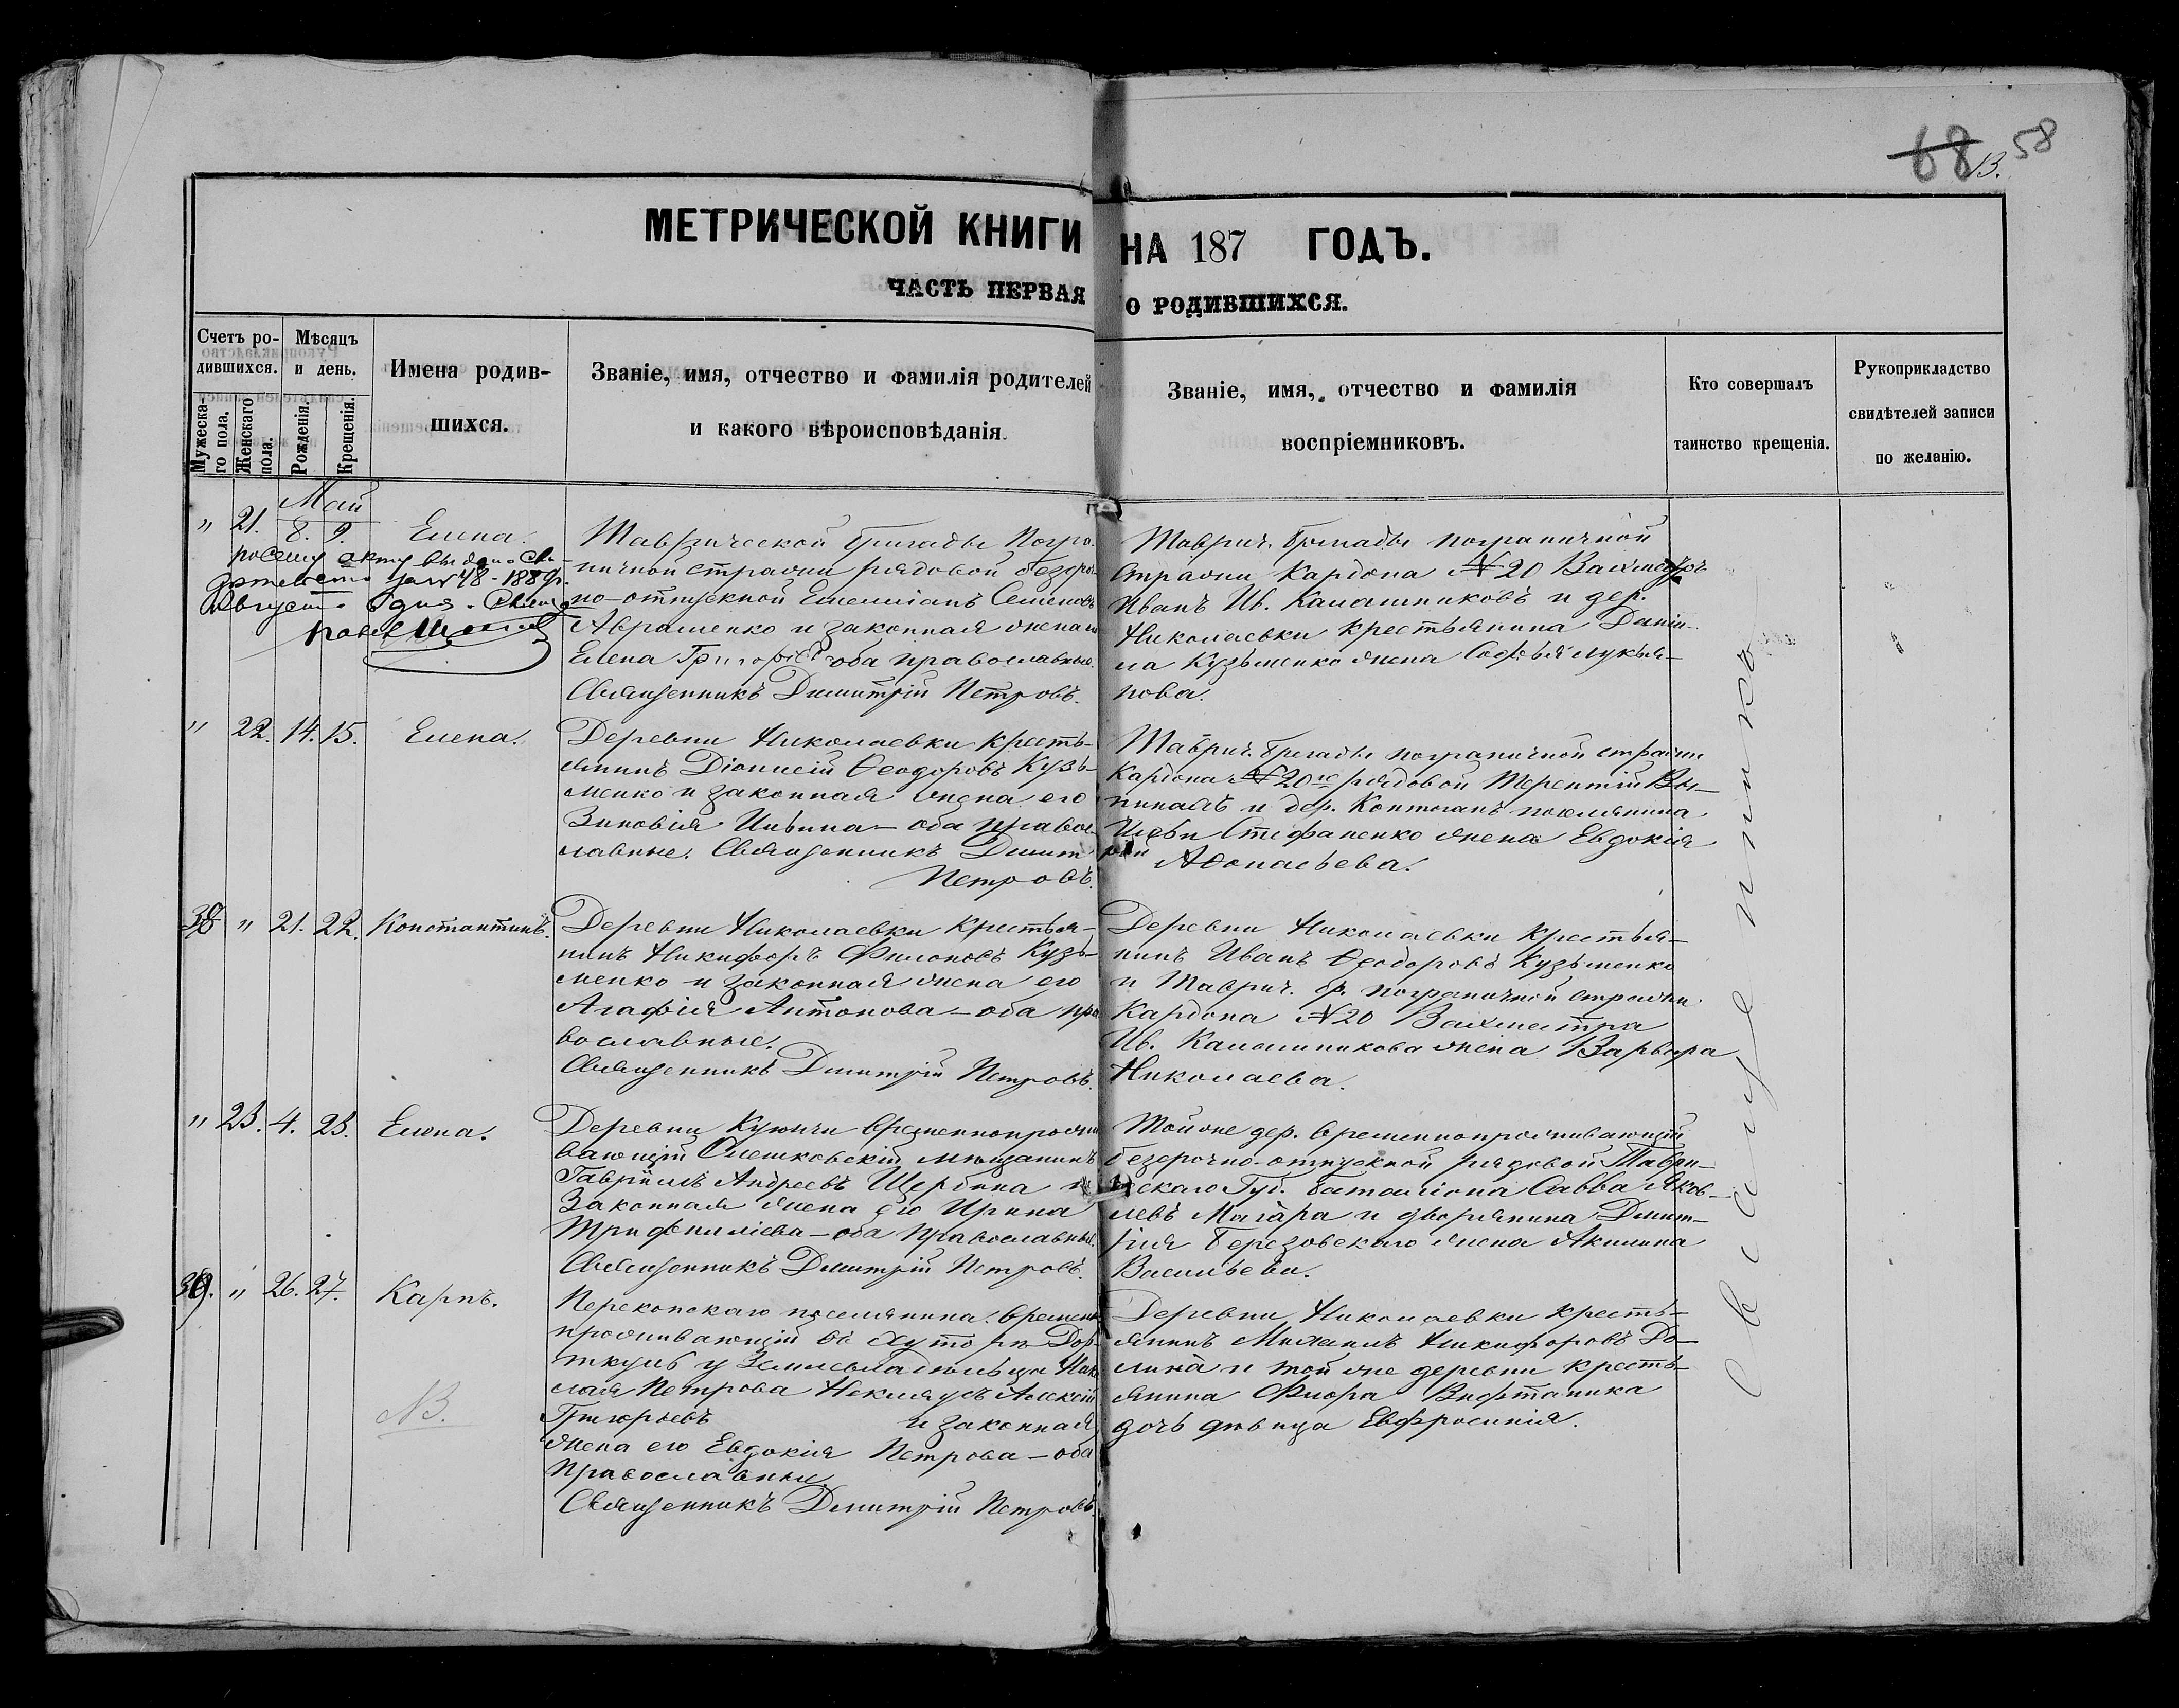 68 58
13.
МЕТРИЧЕСКОЙ КНИГИ НА 187 ГОДЪ.
ЧАСТЬ ПЕРВАЯ О РОДИВШИХСЯ.
Счетъ ро-
дившихся.
Мужеска-
го пола.
Женскаго
пола.
Мѣсяцъ
и день.
Рожденія.
Крещенія.
Имена родив-
шихся.
Званіе, имя, отчество и фамилія родителей
и какого вѣроисповѣданія.
Званіе, имя, отчество и фамилія
воспріемниковъ.
Кто совершалъ
таинство крещенія.
Рукоприкладство
свидѣтелей записи
по желанію.
Май
" 21. 8. 9. Елена.
по сему акту выдано сви-
дѣтельство за № 48 - 188
Августа 6 дня. Свящ
Таврической бригады Погра-
ничной стражи рядовой безсро-
но-отпускной Емеліанъ Семеновъ
Авраменко и законная жена его
Елена Григорiева оба православные.
Священникъ Димитрій Петровъ.
Таврич. бригады пограничной
стражи Кардона № 20 Вахмистръ
Иванъ Ив. Калашниковъ и дер.
Николаевки крестьянина Дани-
ла Кузьменко жена Софья Лукья-
нова.
" 22. 14. 15. Елена.
Деревни Николаевки кресть-
янинъ Діонисій Ѳеодоровъ Кузь-
менко и законная жена его
Зиновія Ильина - оба право-
славные. Священникъ Димитрій
Петровъ.
Таврич. бригады пограничной стражи
Кардона № 20го рядовой Терентій
и дер. поселянина
Стефаненко жена Евдокія
Аѳонасьева.
38 " 21. 22. Константинъ.
Деревни Николаевки Крестья-
нинъ Никифоръ Филоновъ Кузь-
менко и законная жена его
Агафія Антонова - оба пра
вославные.
Священникъ Димитрій Петровъ.
Деревни Николаевки Крестья-
нинъ Иванъ Ѳеодоровъ Кузьменко
и Таврич. бр. пограничной стражи
Кардона № 20 Вахмистра
Ив. Калашникова жена Варвара
Николаева.
" 23. 4. 23. Елена.
Деревни временнопрожи
вающій Олешковскій мѣщанинъ
Гавріилъ Андреевъ Щербина и
Законная жена его Ирина
Трифилліева - оба православные.
Священникъ Димитрій Петровъ.
Той же дер. временнопроживающій
безсрочно-отпускной рядовой Таври-
ческаго Губ. баталіона Савва Яков-
левъ Магара и дворянина Димит-
рія Березовскаго жена Акилина
Васильева.
39. " 26. 27. Карпъ.
NB.
Перекопскаго поселянина временно
проживающій въ хуторѣ
у Землевладѣльца Нико
лая Петрова Алексій
Григорьевъ и законная
жена его Евдокія Петрова - оба
Православные.
Священникъ Димитрій Петровъ.
Деревни Николаевки кресть-
янинъ Михаилъ Никифоровъ До-
лина и той же деревни кресть-
янина
дочь дѣвица Евфросинія.